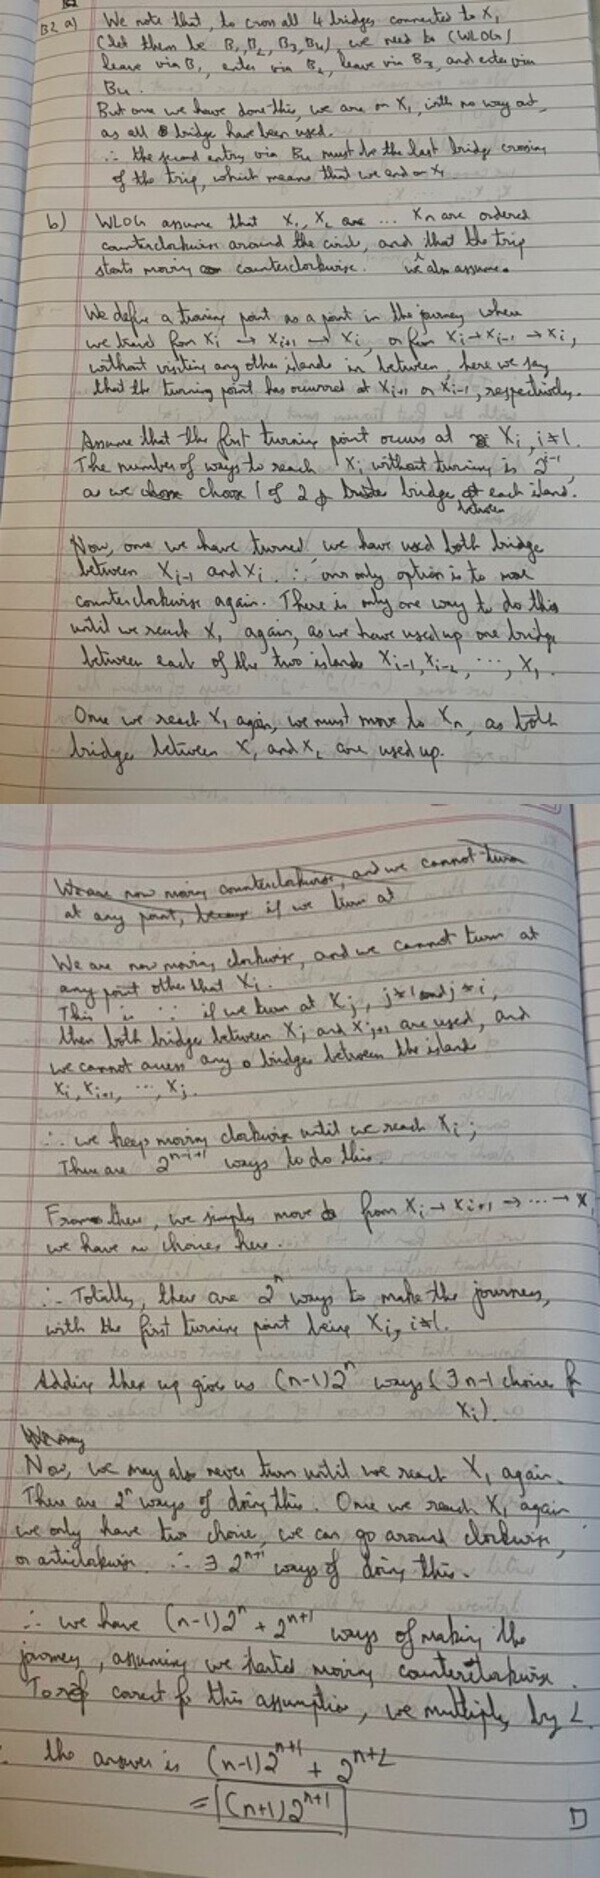 B2 a) We note that, to cross all 4 bridges connected to X₁
(let them be B₁, B₂, B₃, B₄), we need to (WLOG)
leave via B₁, enter via B₂, leave via B₃, and enter via
B₄.
But once we have done this, we are on X₁, with no way out,
as all bridge have been used.
∴ the second entry via B₄ must be the last bridge crossing
of the trip, which means that we end on X₁
b) WLOG assume that X₁, X₂ ... Xn are ordered
counterclockwise around the circle, and that the trip
starts moving counterclockwise. we also assume
We define a turning point as a point in the journey where
we travel from Xi → Xi+1 → Xi, or from Xi → Xi-1 → Xi,
without visiting any other island in between, here we say
that the turning point has occurred at Xi+1 or Xi-1, respectively.
Assume that the first turning point occurs at Xi, i≠1.
The number of ways to reach Xi without turning is 2^i-1
as we choose 1 of 2 bridge between each island.
Now, once we have turned we have used both bridge
between Xi-1 and Xi. ∴ our only option is to move
counterclockwise again. There is only one way to do this
until we reach X₁ again, as we have used up one bridge
between each of the two islands Xi-1, Xi-2, ..., X₁.
Once we reach X₁ again, we must move to Xn, as both
bridge between X₁ and X₂ are used up.
We are now moving counterclockwise, and we cannot turn
at any point, if we turn at
We are now moving clockwise, and we cannot turn at
any point other that Xi.
This is ∵ if we turn at Xj, j≠1 and j≠i,
then both bridge between Xj and Xj+1 are used, and
we cannot access any bridge between the island
Xi, Xi+1, ..., Xj.
∴ we keep moving clockwise until we reach Xi;
There are 2^n-i+1 ways to do this.
From there, we simply move from Xi → Xi+1 → ... → X₁
we have no choice here.
∴ Totally, there are 2^n ways to make the journey,
with the first turning point being Xi, i≠1.
Adding them up give us (n-1)2^n ways (∃ n-1 choice for
Xi).
Now, we may also never turn until we reach X₁ again.
There are 2^n ways of doing this. Once we reach X₁ again
we only have two choice, we can go around clockwise,
or anticlockwise. ∴ ∃ 2^n+1 ways of doing this.
∴ we have (n-1)2^n + 2^n+1 ways of making the
journey, assuming we started moving counterclockwise.
To correct for this assumption, we multiply by 2.
∴ the answer is (n-1)2^n+1 + 2^n+2
= (n+1)2^n+1